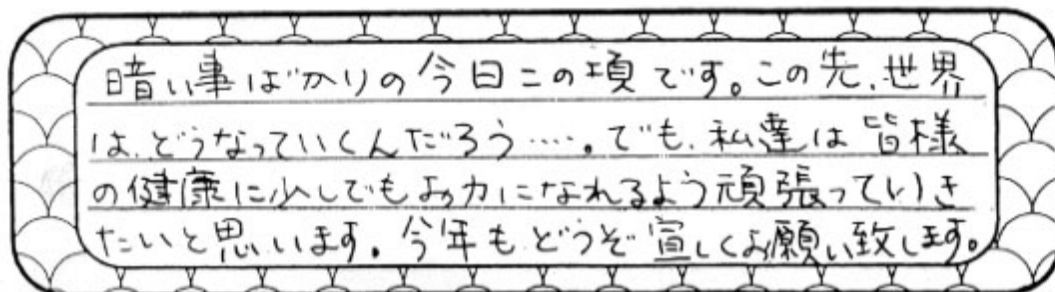 暗い事ばかりの今日この頃です。この先、世界
は、どうなっていくんだろう……。でも、私達は皆様
の健康に少しでもお力になれるよう頑張っていき
たいと思います。今年もどうぞ宜しくお願い致します。